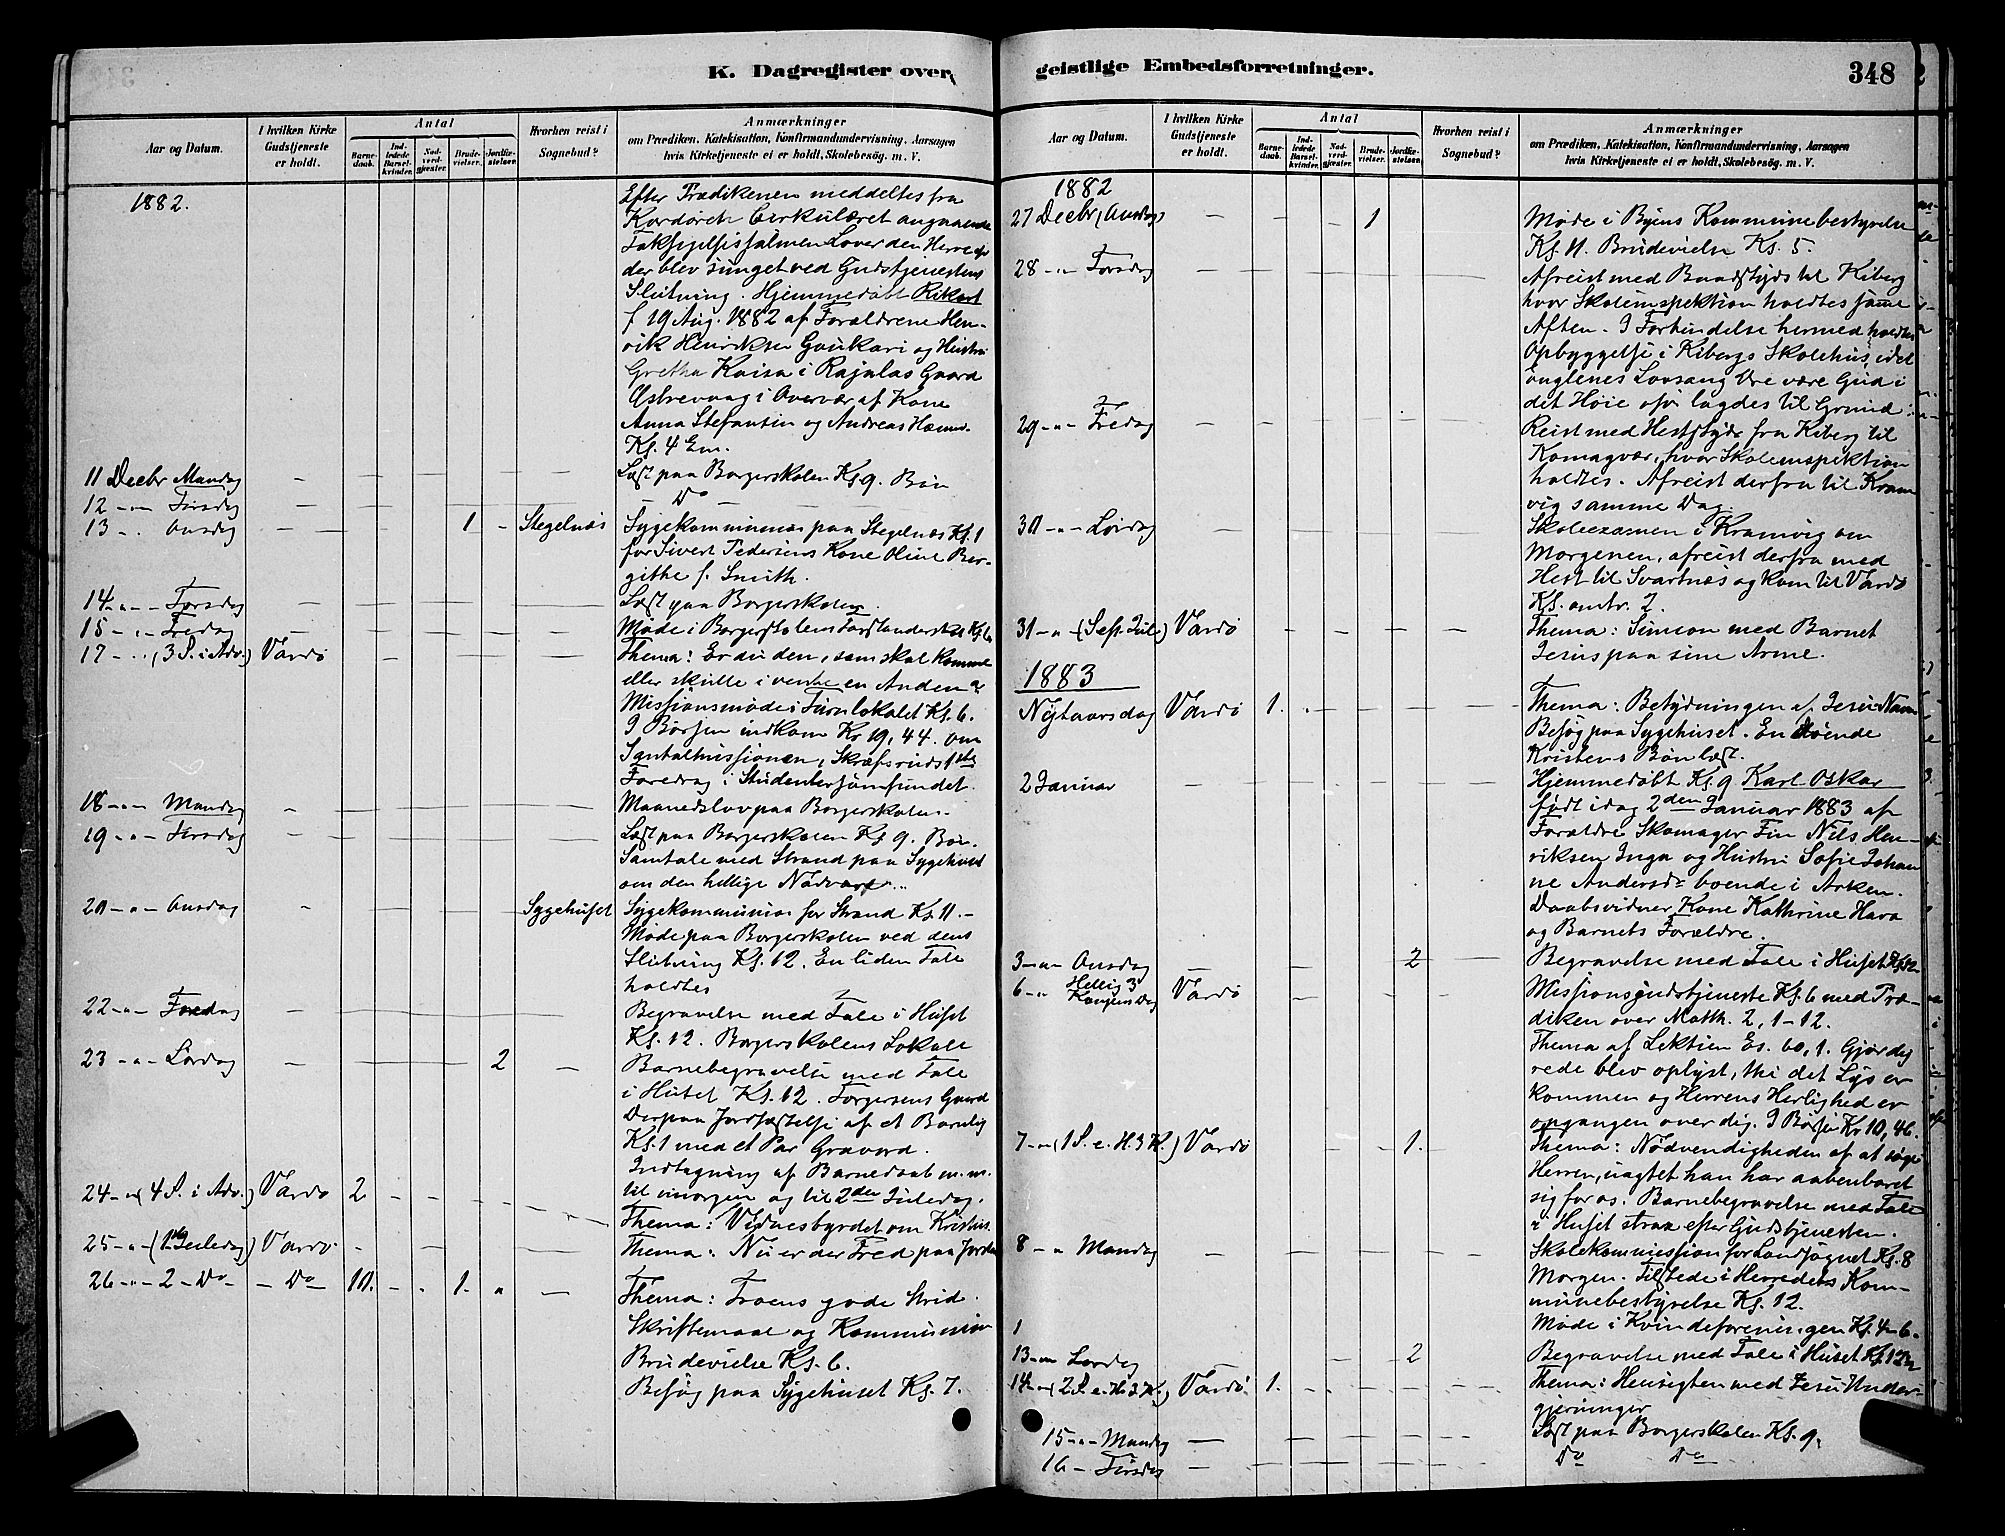 K. Dagregister over geistlige Embedsforretninger.
348
Aar og Datum.
I hvilken Kirke Gudstjeneste er holdt.
Antal
Barnedaab.
Indledede Barselkvinder.
Nadverdgjester.
Brudevielser.
Jordfæstelser.
Hvorhen reist i Sognebud?
Anmærkninger
om Prædiken, Katekisation, Konfirmandundervisning, Aarsagen
hvis Kirketjeneste ei er holdt, Skolebesøg. m. V.
1882.
Efter Prædikenen meddeltes fra
Kordören Cirkulæret angaaende
Taksigelsissalmen Lover den Herre
der blev sunget ved Gudstjenestens
Slutning. Hjemmedöbt Rikart
f 19 Aug. 1882 af Forældrene Hen-
rik Henriksen Gaukari og Hustru
Gretha Kaisa i Rajalas Gaard
Østrevaag i Overvær af Kone
Anna Stefantin og Andreas
Kl. 4 Em.
11 Decbr Mandag - Læst paa Borgerskolen Kl 9. Bön
12 - Tirsdag - Do
13 - Onsdag - 1 - Stegelnæs Sygekommunion paa Stegelnæs Kl. 1
for Sivert Pedersens Kone Oline Ber-
githe f. Smith.
14 - Torsdag Læst paa Borgerskolen.
15 - Fredag Möde i Borgerskolens Forstanderskab Kl 6
17 - (3 S. i Adv.) Vardö Thema: Er du den, som skal komme
eller skulle i vente en Anden
Missionsmöde i Turnlokalet Kl. 6.
I Börsen indkom Kr 19,44. om
Santalmissionen, Skrefsruds 1ste
Foredrag i Studentersamfundet.
18 - Mandag Maanedslov paa Borgerskolen.
19 - Tirsdag Læst paa Borgerskolen Kl 9. Bön.
Samtale med Strand paa Sygehuset
om den hellige Nadvere
20 - Onsdag Sygehuset Sygekommunion for Strand Kl. 11. -
Möde paa Borgerskolen ved dens
Slutning Kl. 12. En liden Tale
holdtes
22 - Fredag Begravelse med Tale i Huset
Kl. 12. Borgerskolens Lokale
23 - Lördag 2 Barnebegravelse med Tale
i Huset Kl. 12. Torgersens Gaard
Derpaa Jordfæstelse af et Barnlig
Kl. 1 med et Par Gravord.
Indtagning af Barnedaab m. m.
til imorgen og til 2den Juledag.
24 - (4 S. i Adv.) Vardö 2 Thema: Vidnesbyrdet om Kristus.
25 - (1ste Juledag) Vardö Thema: Nu er der Fred paa Jorden
26 - 2 - Do - Do 10. 1. Thema: Troens gode Strid.
Skriftemaal og Kommunion
Brudevielse Kl. 6.
Besög paa Sygehuset Kl. 7.
Aar og Datum.
I hvilken Kirke Gudstjeneste er holdt.
Antal
Barnedaab.
Indledede Barselkvinder.
Nadverdgjester.
Brudevielser.
Jordfæstelser.
Hvorhen reist i Sognebud?
Anmærkninger
om Prædiken, Katekisation, Konfirmandundervisning, Aarsagen
hvis Kirketjeneste ei er holdt, Skolebesøg. m. V.
1882
27 Decbr (Onsdag) 1 Möde i Byens Kommunebestyrelse
Kl. 11. Brudevielse Kl. 5.
28 - Torsdag Afreist med Baadskyds til Kiberg
hvor Skoleinspektion holdtes samme
Aften. I Forbindelse hermed holdtes
Opbyggelse i Kibergs Skolehus, idet
Englenes Lovsang Ære være Gud i
det Höie osv. lagdes til Grund.
29 - Fredag Reist med Hestskyds fra Kiberg til
Komagvær, hvor Skoleinspektion
holdtes. Afreist derfra til Kram-
vig samme Dag.
30 - Lördag Skoleexamen i Kramvig om
Morgenen, afreist derfra med
Hest til Svartnæs og kom til Vardö
Kl. omtr. 2.
31 - (Sös. Jule) Vardö Thema: Simeon med Barnet
Jesus paa sine Arme.
1883
Nytaarsdag Vardö 1. Thema: Betydningen af Jesu Navn
Besög paa Sygehuset. En döende
Kristens Bön læst.
2 Januar Hjemmedöbt Kl. 9 Karl Oskar
födt idag 2den Januar 1883 af
Forældre Skomager Fin Nils Hen-
riksen Inga og Hustru Sofie Johan-
ne Andersdr boende i Arken.
Daabsvidner Kone Kathrine Hara
og Barnets Forældre.
3 - Onsdag 2 Begravelse med Tale i Huset Kl 12
6 - Hellig 3 Kongers Dag Vardö Missionsgudstjeneste Kl. 6 med Præ-
diken over Matth. 2, 1-12.
Thema af Lektien Es. 60, 1. Gjör dig
rede blev oplyst, thi det Lys er
kommen og Herrens Herlighed er
opgangen over dig. I Börse Kr 10,46.
7 - (1 S. e. H. 3 K.) Vardö 1. Thema: Nödvendigheden af at söge
Herren, uagtet han har aabenbaret
sig for os. Barnebegravelse med Tale
i Huset strax efter Gudstjenesten.
8 - Mandag Skolekommission for Landsognet Kl. 8
Morgen. Tilstede i Herredets Kom-
munebestyrelse Kl. 12.
Möde i Kvindeforeningen Kl. 4-6.
13 - Lördag 2 Begravelse med Tale i Huset Kl. 12
14 - (2 S. e. H. 3 K.) Vardö 1. Thema: Hensigten med Jesu Under-
gjerninger
15 - Mandag Læst paa Borgerskolen Kl. 9.
16 - Tirsdag Do Do